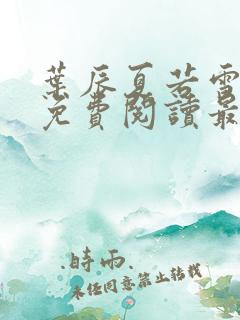 葉辰夏若雪
免費閱讀最
.時雨.
未經同意禁止轉載